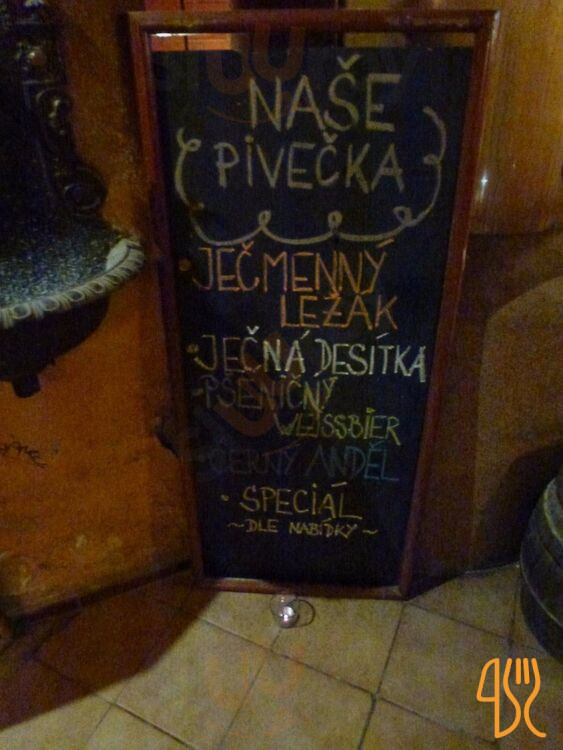 NAŠE
PIVEČKA
JEČMENNÝ
LEŽÁK
JEČNÁ DESÍTKA
PŠENIČNÝ
WEISSBIER
ČERNÝ ANDĚL
SPECIÁL
~ DLE NABÍDKY ~